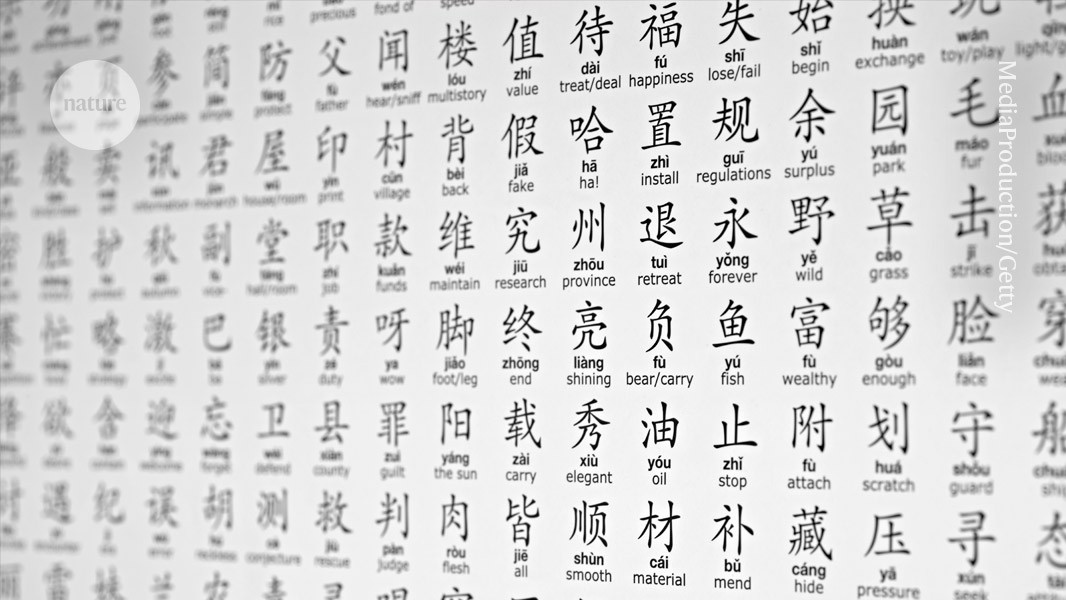 precious
fond of
speed
参 简 防 父 闻 楼 值 待 福 失 始 换
fáng fù wén lóu zhí dài fú shī shǐ huàn wán
protect father hear/sniff multistory value treat/deal happiness lose/fail begin exchange toy/play
nature
般 卖 讯 君 屋 印 村 背 假 哈 置 规 余 园 毛 血
wū yìn cūn bèi jiǎ hā zhì guī yú yuán máo
information monarch house/room print village back fake ha! install regulations surplus park fur
胜 护 秋 副 堂 职 款 维 究 州 退 永 野 草 击 获
táng zhí kuǎn wéi jiū zhōu tuì yǒng yě cǎo jī
hall/room job funds maintain research province retreat forever wild grass strike
忙 略 激 巴 银 责 呀 脚 终 亮 负 鱼 富 够 脸 穿
yín zé ya jiǎo zhōng liàng fù yú fù gòu liǎn
silver duty wow foot/leg end shining bear/carry fish wealthy enough face
欲 含 迎 忘 卫 县 罪 阳 载 秀 油 止 附 划 守 船
wàng wèi xiàn zuì yáng zài xiù yóu zhǐ fù huá shǒu
welcome forget defend county guilt the sun carry elegant oil stop attach scratch guard
遇 纪 误 胡 测 救 判 肉 皆 顺 材 补 藏 压 寻 态
jiù pàn ròu jiē shùn cái bǔ cáng yā xún
conjecture rescue judge flesh all smooth material mend hide pressure seek
MediaProduction/Getty